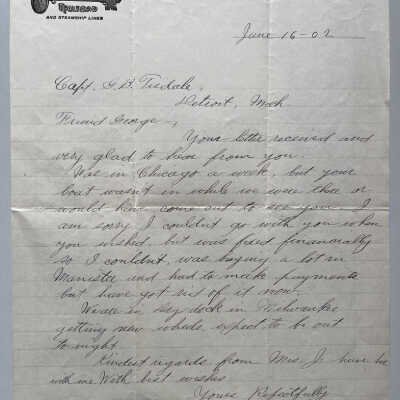 RAILROAD
AND STEAMSHIP LINES
June 16-02
Capt. G. B. Tisdale,
Detroit, Mich
Friend George,
Your letter received and
very glad to hear from you.
Was in Chicago a week, but your
boat wasn't in while we were there or
would have come out to see you. I
am sorry I couldn't go with you when
you wished, but was fixed financially
so I couldn't, was buying a lot in
Manistee and had to make payments
but have got rid of it now.
We are in dry dock in Milwaukee
getting new wheels, expect to be out
to night.
Kindest regards from Mrs. J. have her
with me. With best wishes
Yours Respectfully